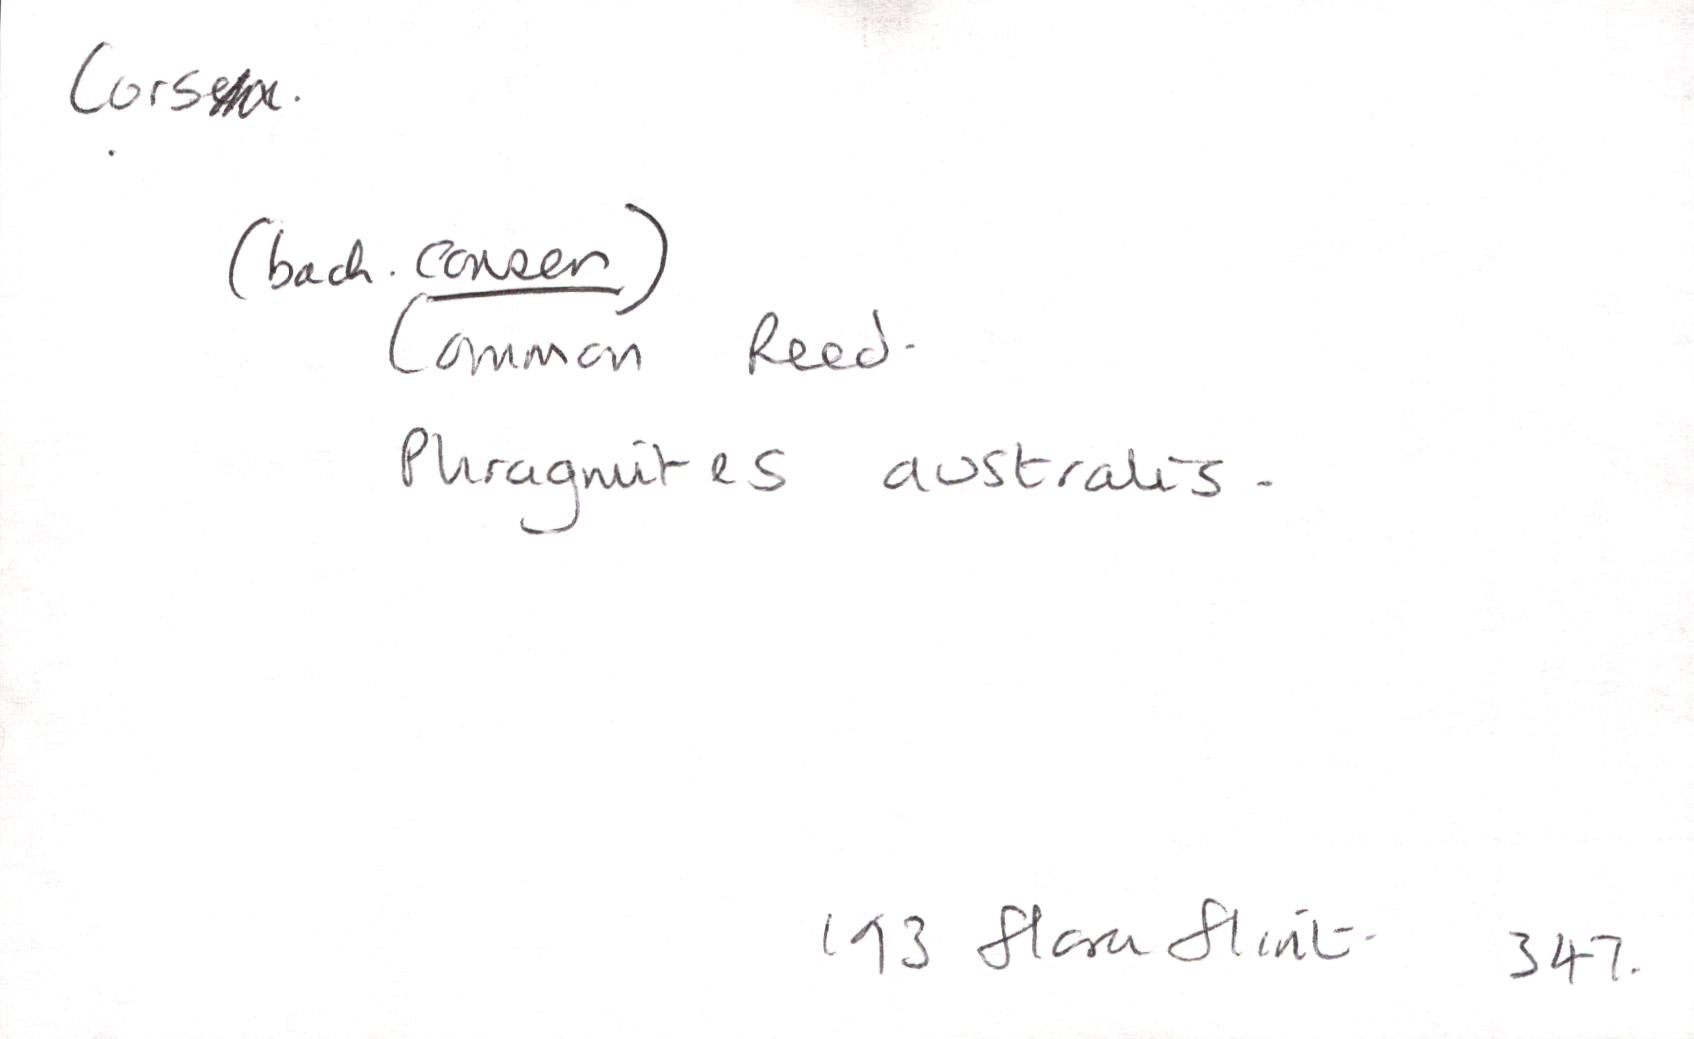 (bach. corsen)
Common Reed.
Phragmites australis.
193 Flora Flint. 347.